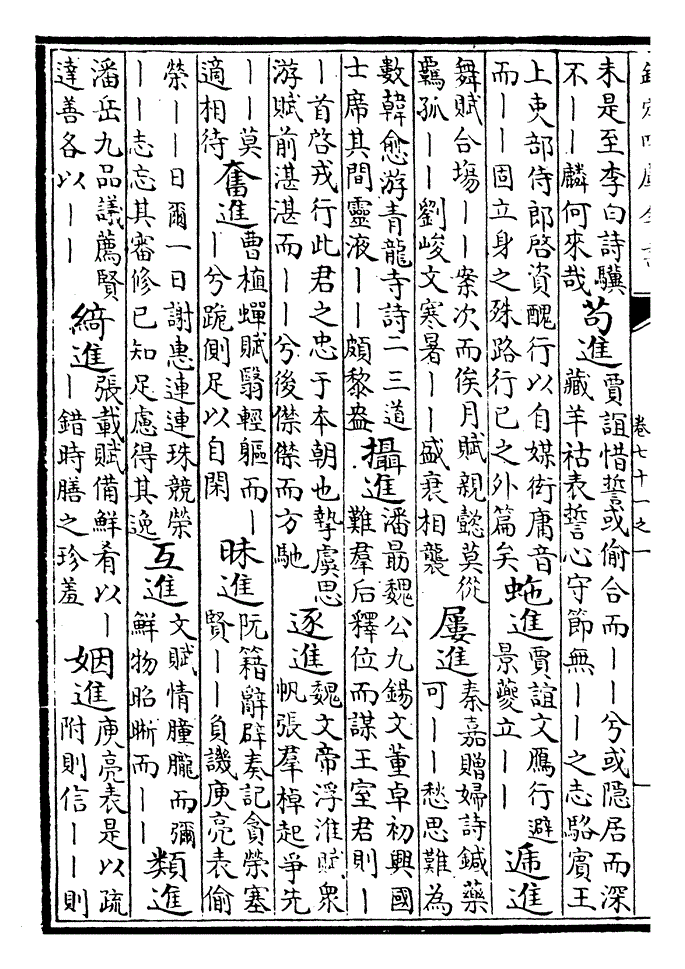 卷七十一之一
未是至李白詩驥
不｜｜麟何來哉
苟進
賈誼惜誓或偷合而｜｜兮或隱居而深
藏羊祜表誓心守節無｜｜之志駱賓王
上吏部侍郎啓資醜行以自媒衒庸音
而｜｜固立身之殊路行已之外篇矣
虵進
賈誼文鴈行避
景夔立｜｜
遞進
舞賦合塲｜｜案次而俟月賦親懿莫從
羇孤｜｜劉峻文寒暑｜｜盛衰相襲
屢進
秦嘉贈婦詩鍼藥
可｜｜愁思難為
數韓愈游青龍寺詩二三道
士席其間靈液｜｜頗黎盌
攝進
潘朂魏公九錫文董卓初興國
難羣后釋位而謀王室君則｜
｜首啓戎行此君之忠于本朝也摯虞思
游賦前湛湛而｜｜兮後傑傑而方馳
逐進
魏文帝浮淮賦衆
帆張羣棹起爭先
｜｜莫
適相待
奮進
曹植蟬賦翳輕軀而｜
｜兮跪側足以自閑
昧進
阮籍辭辟奏記貪榮塞
賢｜｜負譏庾亮表偷
榮｜｜日爾一日謝惠連連珠競榮
｜｜志忘其審修已知足慮得其逸
互進
文賦情曈曨而彌
鮮物昭晣而｜｜
類進
潘岳九品議薦賢
達善各以｜｜
綺進
張載賦備鮮肴以｜
｜錯時膳之珍羞
姻進
庾亮表是以疏
附則信｜｜則